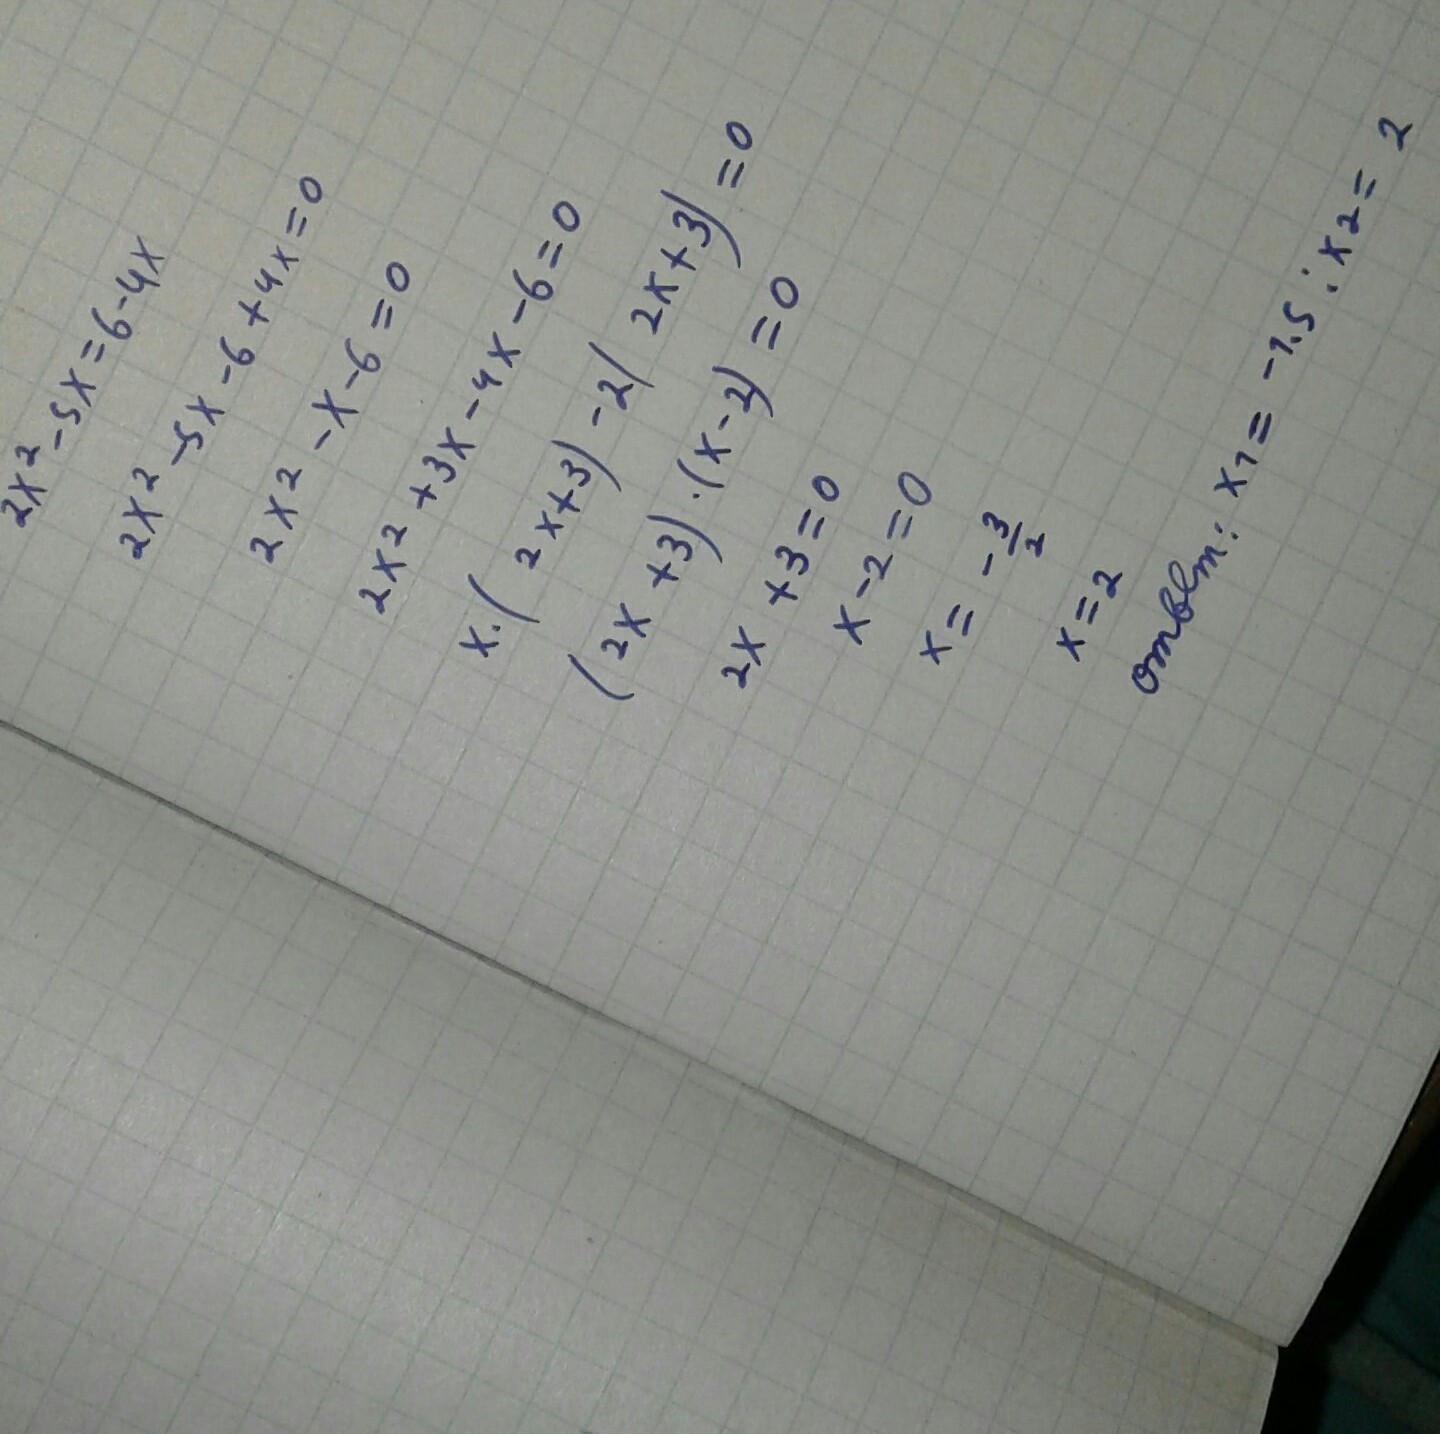 2x² -5x = 6-4x
2x² -5x -6 +4x = 0
2x² -x -6 = 0
2x² +3x -4x -6 = 0
x·(2x+3) -2(2x+3) = 0
(2x+3)·(x-2) = 0
2x+3=0
x-2=0
x= -3/2
x=2
ответ: x1 = -1.5; x2 = 2